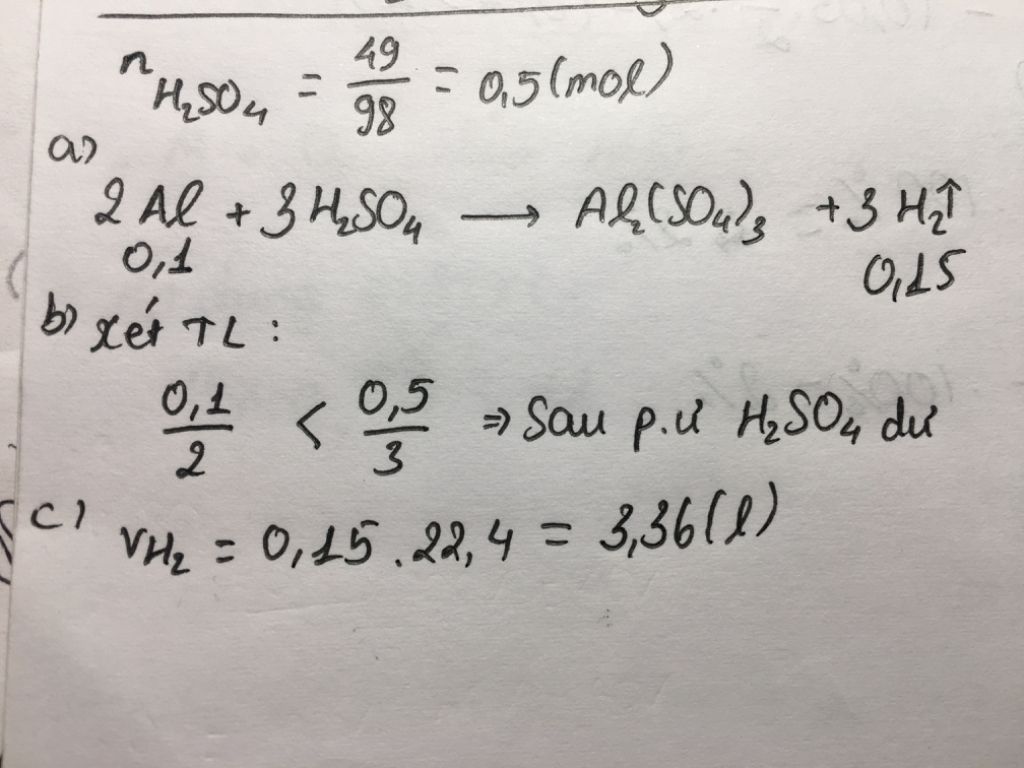 nH₂SO₄ = 49/98 = 0,5 (mol)
a)
2Al + 3H₂SO₄ ⟶ Al₂(SO₄)₃ + 3H₂↑
0,1 0,15
b) Xét TL :
0,1/2 < 0,5/3 ⇒ Sau p.ư H₂SO₄ dư
c) VH₂ = 0,15 . 22,4 = 3,36 (l)